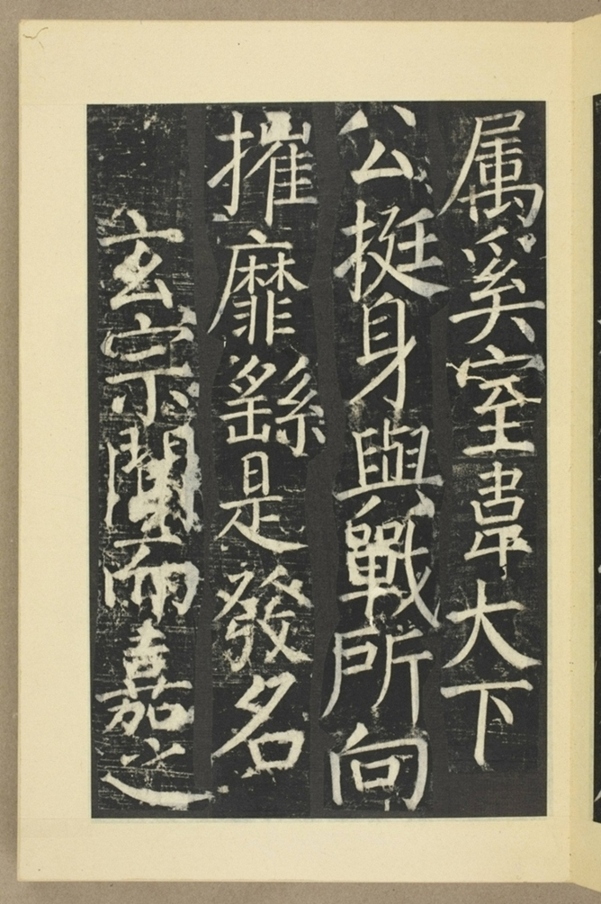 属奚室韋大下
公挺身與戰所向
摧靡繇是發名
玄宗聞而嘉之